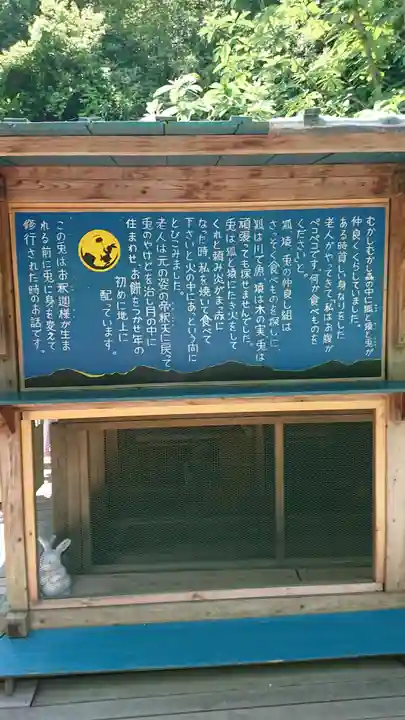 むかしむかし森の中に狐と猿と兎が
仲良くくらしていました。
ある時貧しい身なりをした
老人がやってきて、私はお腹が
ペコペコです。何か食べものを
くださいと。
狐、猿、兎の仲良し組は
さっそく食べものを探しに、
狐は川で魚、猿は木の実、兎は
頑張っても探せませんでした。
兎は狐と猿にたき火をして
くれと頼み火がまっ赤に
なった時、私を焼いて食べて
下さいと火の中にあっという間に
とびこみました。
老人は元の姿の帝釈天に戻って
兎のやけどを治し月の中に
住まわせ、お餅をつかせ年の
初めに地上に
配っています。
この兎はお釈迦様が生ま
れる前に兎に身を変えて
修行された時のお話です。